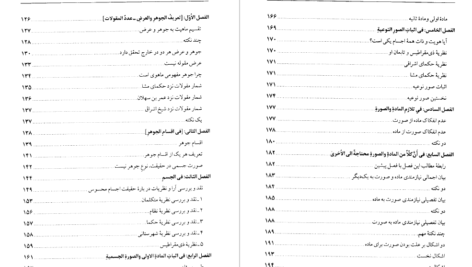 الفصل الأوّل: [تعریف الجوهر والعرض ـ عدد المقولات] ۱۲۶
تقسیم ماهیت به جوهر و عرض ۱۲۷
چند نکته ۱۲۸
جوهر و عرض هر دو در خارج تحقق دارد
عرض مقوله نیست
چرا جوهر مفهومی ماهوی است
شمار مقولات نزد حکمای مشا ۱۳۵
شمار مقولات نزد عمر بن سهلان ۱۳۶
شمار مقولات نزد شیخ اشراق
یک نکته ۱۳۷
الفصل الثانی: [فی اقسام الجوهر] ۱۳۸
اقسام جوهر ۱۳۹
تعریف هر یک از اقسام جوهر
صورت جسمی در حقیقت، نوع جوهر نیست ۱۴۲
الفصل الثالث فی الجسم
نقد و بررسی آرا و نظریات در بارۀ حقیقت اجسام محسوس ۱۴۹
۱ـ نقد و بررسی نظریۀ متکلمان ۱۵۳
۲ـ نقد و بررسی نظریۀ نظام ۱۵۶
۳ـ نقد و بررسی نظریۀ حکما ۱۵۷
۴ـ نقد و بررسی نظریۀ شهرستانی ۱۵۸
۵ـ نظریۀ ذی‌مقراطیس ۱۵۹
الفصل الرابع: فی اثبات المادة الأولی والصورة الجسمیة ۱۶۱
مادۀ اولی و مادۀ ثانیه ۱۶۶
الفصل الخامس: فی اثبات الصور النوعیة ۱۶۹
آیا هویت و ذات همۀ اجسام یکی است؟ ۱۷۰
نظریۀ ذی‌مقراطیس و تابعان او
نظریۀ حکمای اشراقی ۱۷۱
نظریۀ حکمای مشا ۱۷۱
اثبات صور نوعیه
نخستین صور نوعیه ۱۷۴
الفصل السادس: فی تلازم المادة والصورة ۱۷۷
عدم انفکاک ماده از صورت ۱۷۷
عدم انفکاک صورت از ماده
دو نکته ۱۸۰
الفصل السابع: فی أنّ کلاً من المادة والصورة محتاجة الی الأخری ۱۸۲
رابطۀ مطالب این فصل با فصل پیشین ۱۸۲
بیان اجمالی نیازمندی ماده و صورت به یکدیگر
دو نکته
بیان تفصیلی نیازمندی صورت به ماده ۱۸۵
دو نکته ۱۸۸
بیان تفصیلی نیازمندی ماده به صورت ۱۸۸
چند نکتۀ مهم ۱۹۱
دو اشکال بر علت بودن صورت برای ماده
اشکال نخست ۱۹۳
۱۹۴